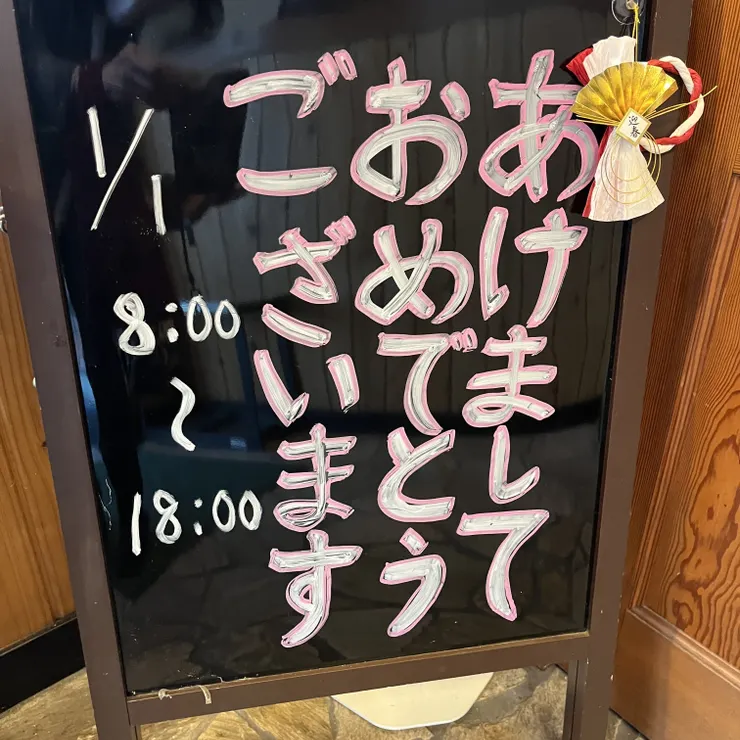 あけまして
おめでとう
ございます
1/1
8:00
〜
18:00
迎春